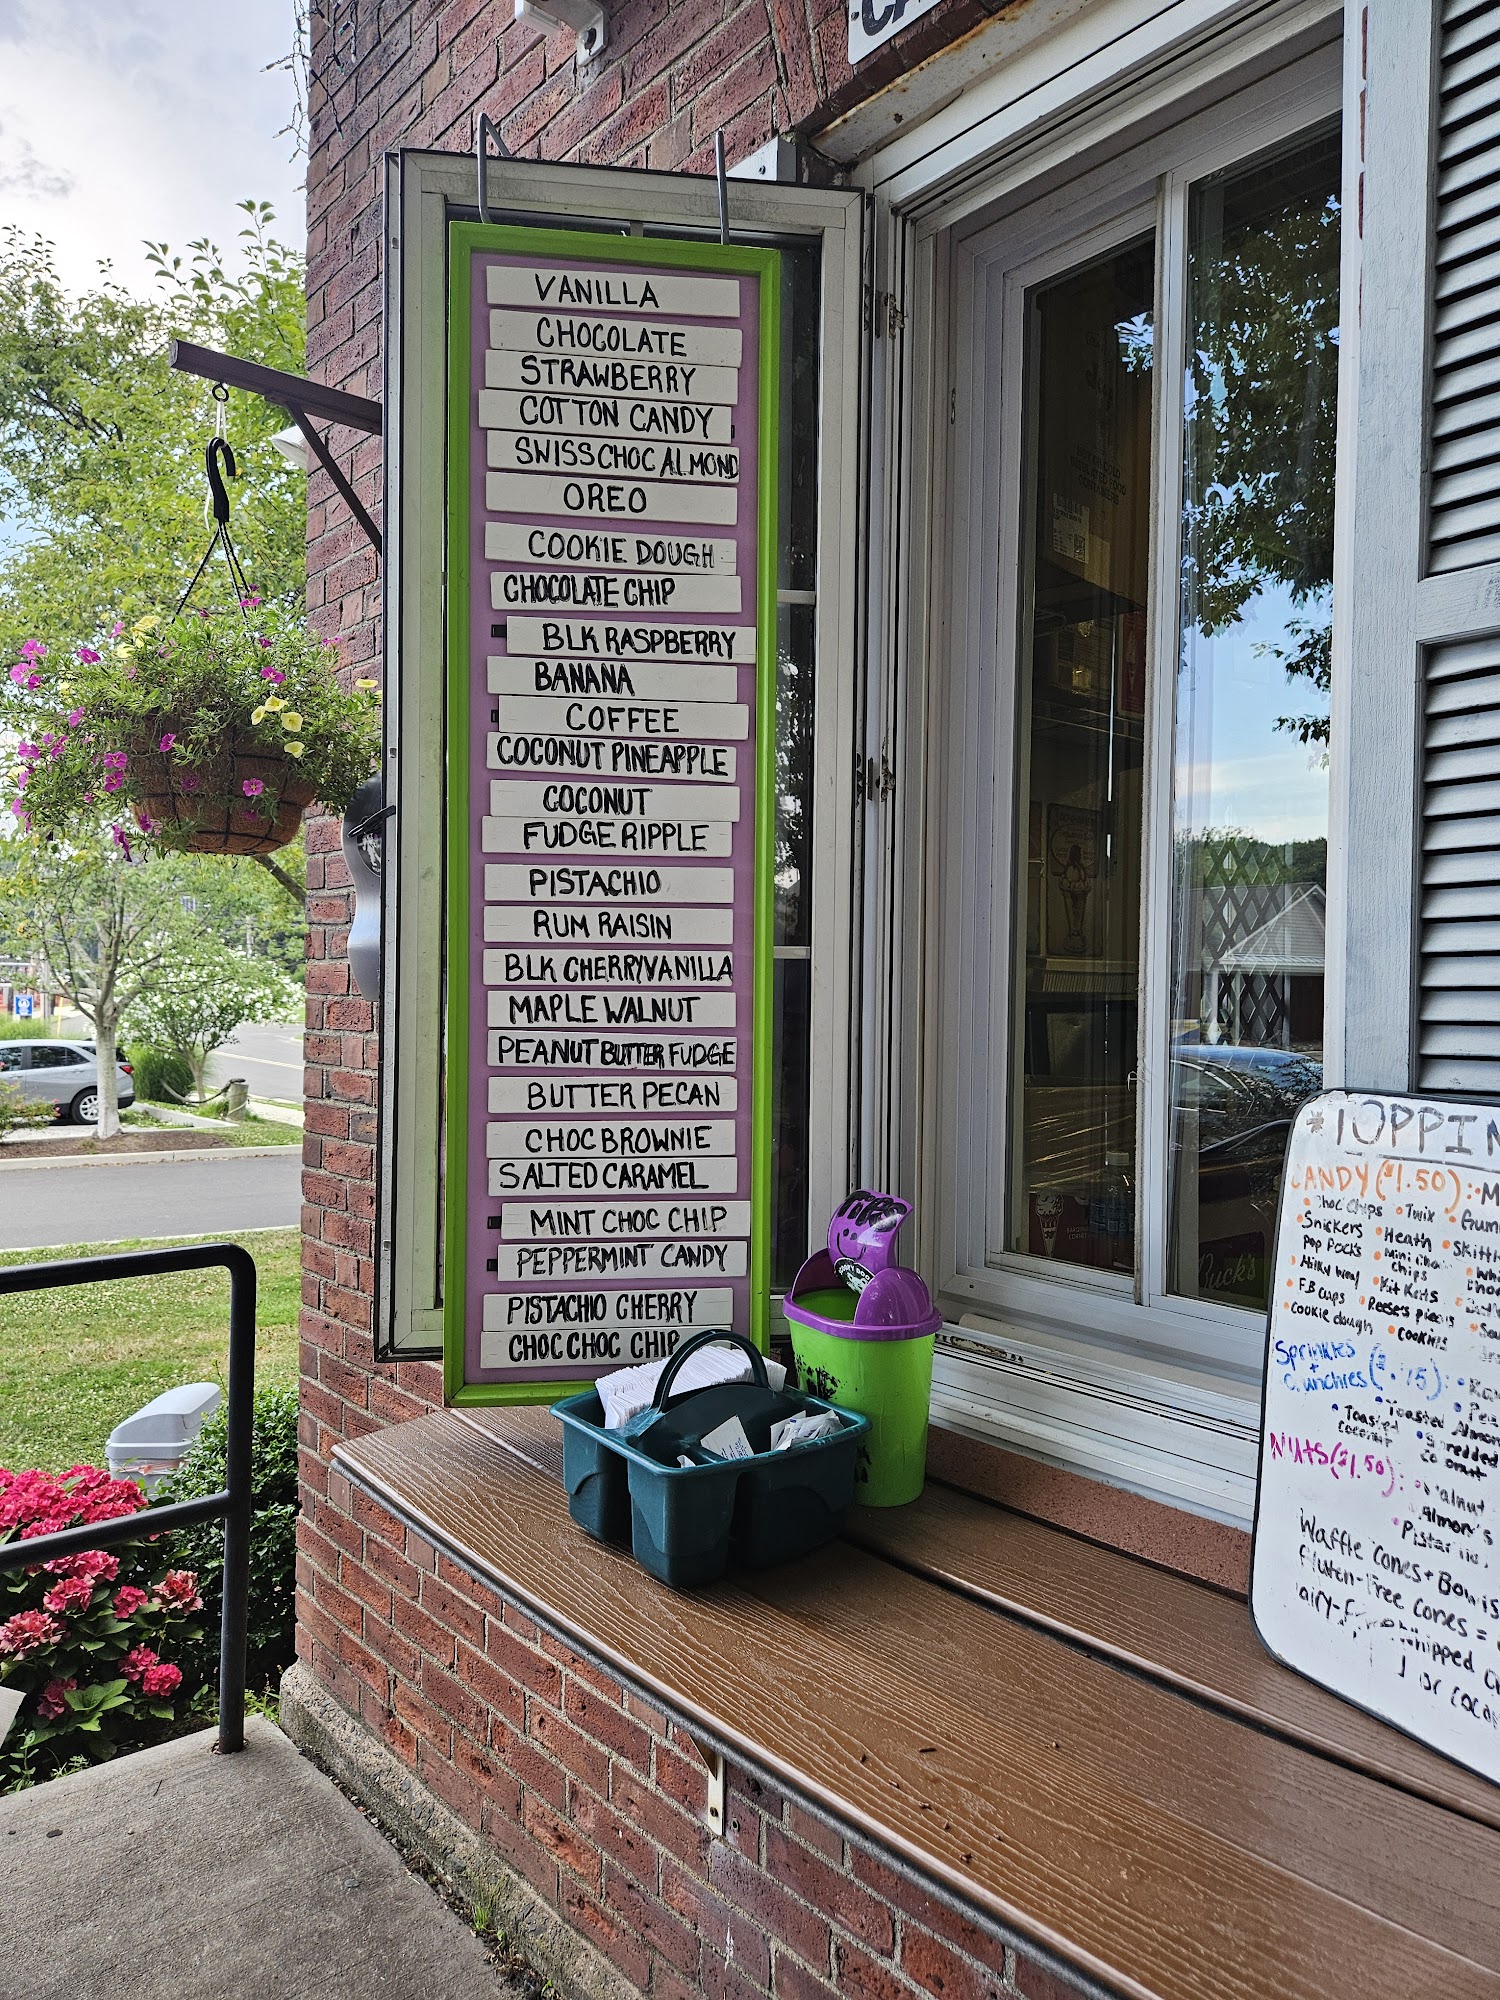 VANILLA
CHOCOLATE
STRAWBERRY
COTTON CANDY
SWISS CHOC ALMOND
OREO
COOKIE DOUGH
CHOCOLATE CHIP
BLK RASPBERRY
BANANA
COFFEE
COCONUT PINEAPPLE
COCONUT
FUDGE RIPPLE
PISTACHIO
RUM RAISIN
BLK CHERRYVANILLA
MAPLE WALNUT
PEANUT BUTTER FUDGE
BUTTER PECAN
CHOC BROWNIE
SALTED CARAMEL
MINT CHOC CHIP
PEPPERMINT CANDY
PISTACHIO CHERRY
CHOC CHOC CHIP
TIPS
*TOPPIN
CANDY ($1.50):
•Choc Chips •Twix •Gum
•Snickers •Heath •Skitt
Pop Rocks
•Milky Way •Kit Kats
•P.B cups •Reeses pieces
•cookie dough •cookies
Sprinkles
+
Crunchies ($.75):
•Toasted Almon
•Toasted coconut •Shredded coconut
Nuts ($1.50): •Walnut
•Almon's
•Pistachio
Waffle Cones + Bowls
Gluten-Free Cones =
Dairy-Free Whipped